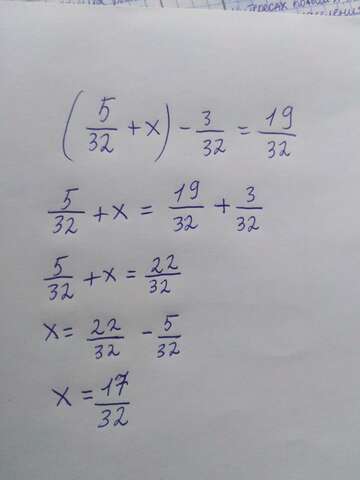 тересах
(5/32 + x) - 3/32 = 19/32
5/32 + x = 19/32 + 3/32
5/32 + x = 22/32
x = 22/32 - 5/32
x = 17/32